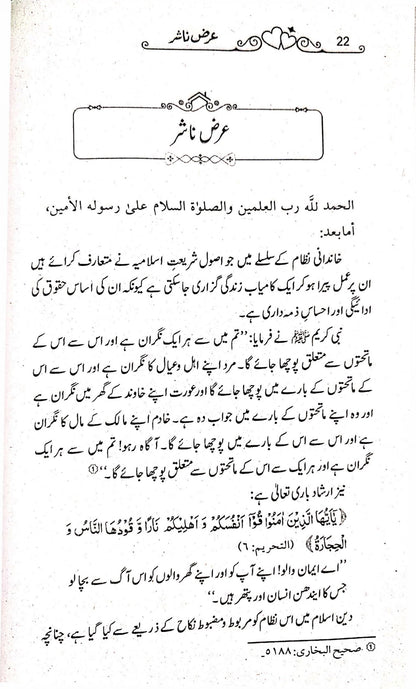 عرض ناشر
22
عرض ناشر
الحمد للّٰه رب العلمين والصلوٰة السلام علىٰ رسوله الأمين،
أما بعد:
خاندانی نظام کے سلسلے میں جو اصول شریعتِ اسلامیہ نے متعارف کرائے ہیں
ان پر عمل پیرا ہو کر ایک کامیاب زندگی گزاری جاسکتی ہے کیونکہ ان کی اساس حقوق کی
ادائیگی اور احساسِ ذمہ داری ہے۔
نبی کریم ﷺ نے فرمایا: ’’تم میں سے ہر ایک نگران ہے اور اس سے اس کے
ماتحتوں سے متعلق پوچھا جائے گا۔ مرد اپنے اہل وعیال کا نگران ہے اور اس سے اس
کے ماتحتوں کے بارے میں پوچھا جائے گا اور عورت اپنے خاوند کے گھر میں نگران ہے
اور وہ اپنے ماتحتوں کے بارے میں جواب دہ ہے۔ خادم اپنے مالک کے مال کا نگران
ہے اور اس سے اس کے بارے میں پوچھا جائے گا۔ آگاہ رہو! تم میں سے ہر ایک
نگران ہے اور ہر ایک سے اس کے ماتحتوں سے متعلق پوچھا جائے گا۔‘‘ ①
نیز ارشاد باری تعالیٰ ہے:
﴿ يٰٓاَيُّهَا الَّذِيْنَ اٰمَنُوْا قُوْٓا اَنْفُسَكُمْ وَ اَهْلِيْكُمْ نَارًا وَّ قُوْدُهَا النَّاسُ وَ
الْحِجَارَةُ ﴾ (التحريم: ٦)
’’اے ایمان والو! اپنے آپ کو اور اپنے گھر والوں کو اس آگ سے بچا لو
جس کا ایندھن انسان اور پتھر ہیں۔‘‘
دین اسلام میں اس نظام کو مربوط و مضبوط نکاح کے ذریعے سے کیا گیا ہے، چنانچہ
① صحيح البخاري: ٥١٨٨۔